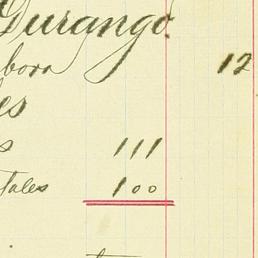 Durango
bora 12
es
s 111
tales 100